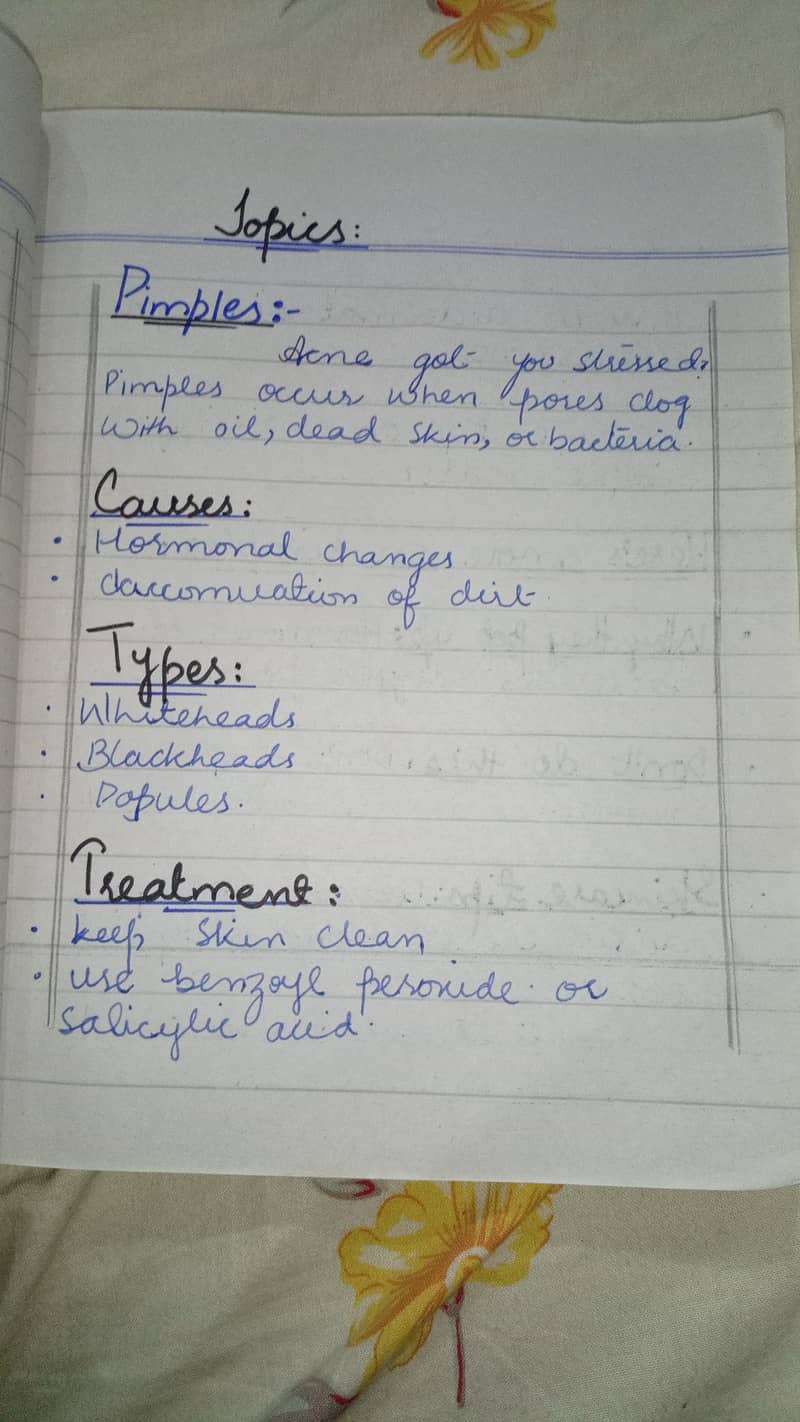 Topics:
Pimples:-
Acne got you stressed?
Pimples occur when pores clog
With oil, dead skin, or bacteria.
Causes:
• Hormonal changes
• of dirt
Types:
• Whiteheads
• Blackheads
• Papules.
Treatment:
• keep skin clean
• use benzoyl peroxide or
salicylic acid.